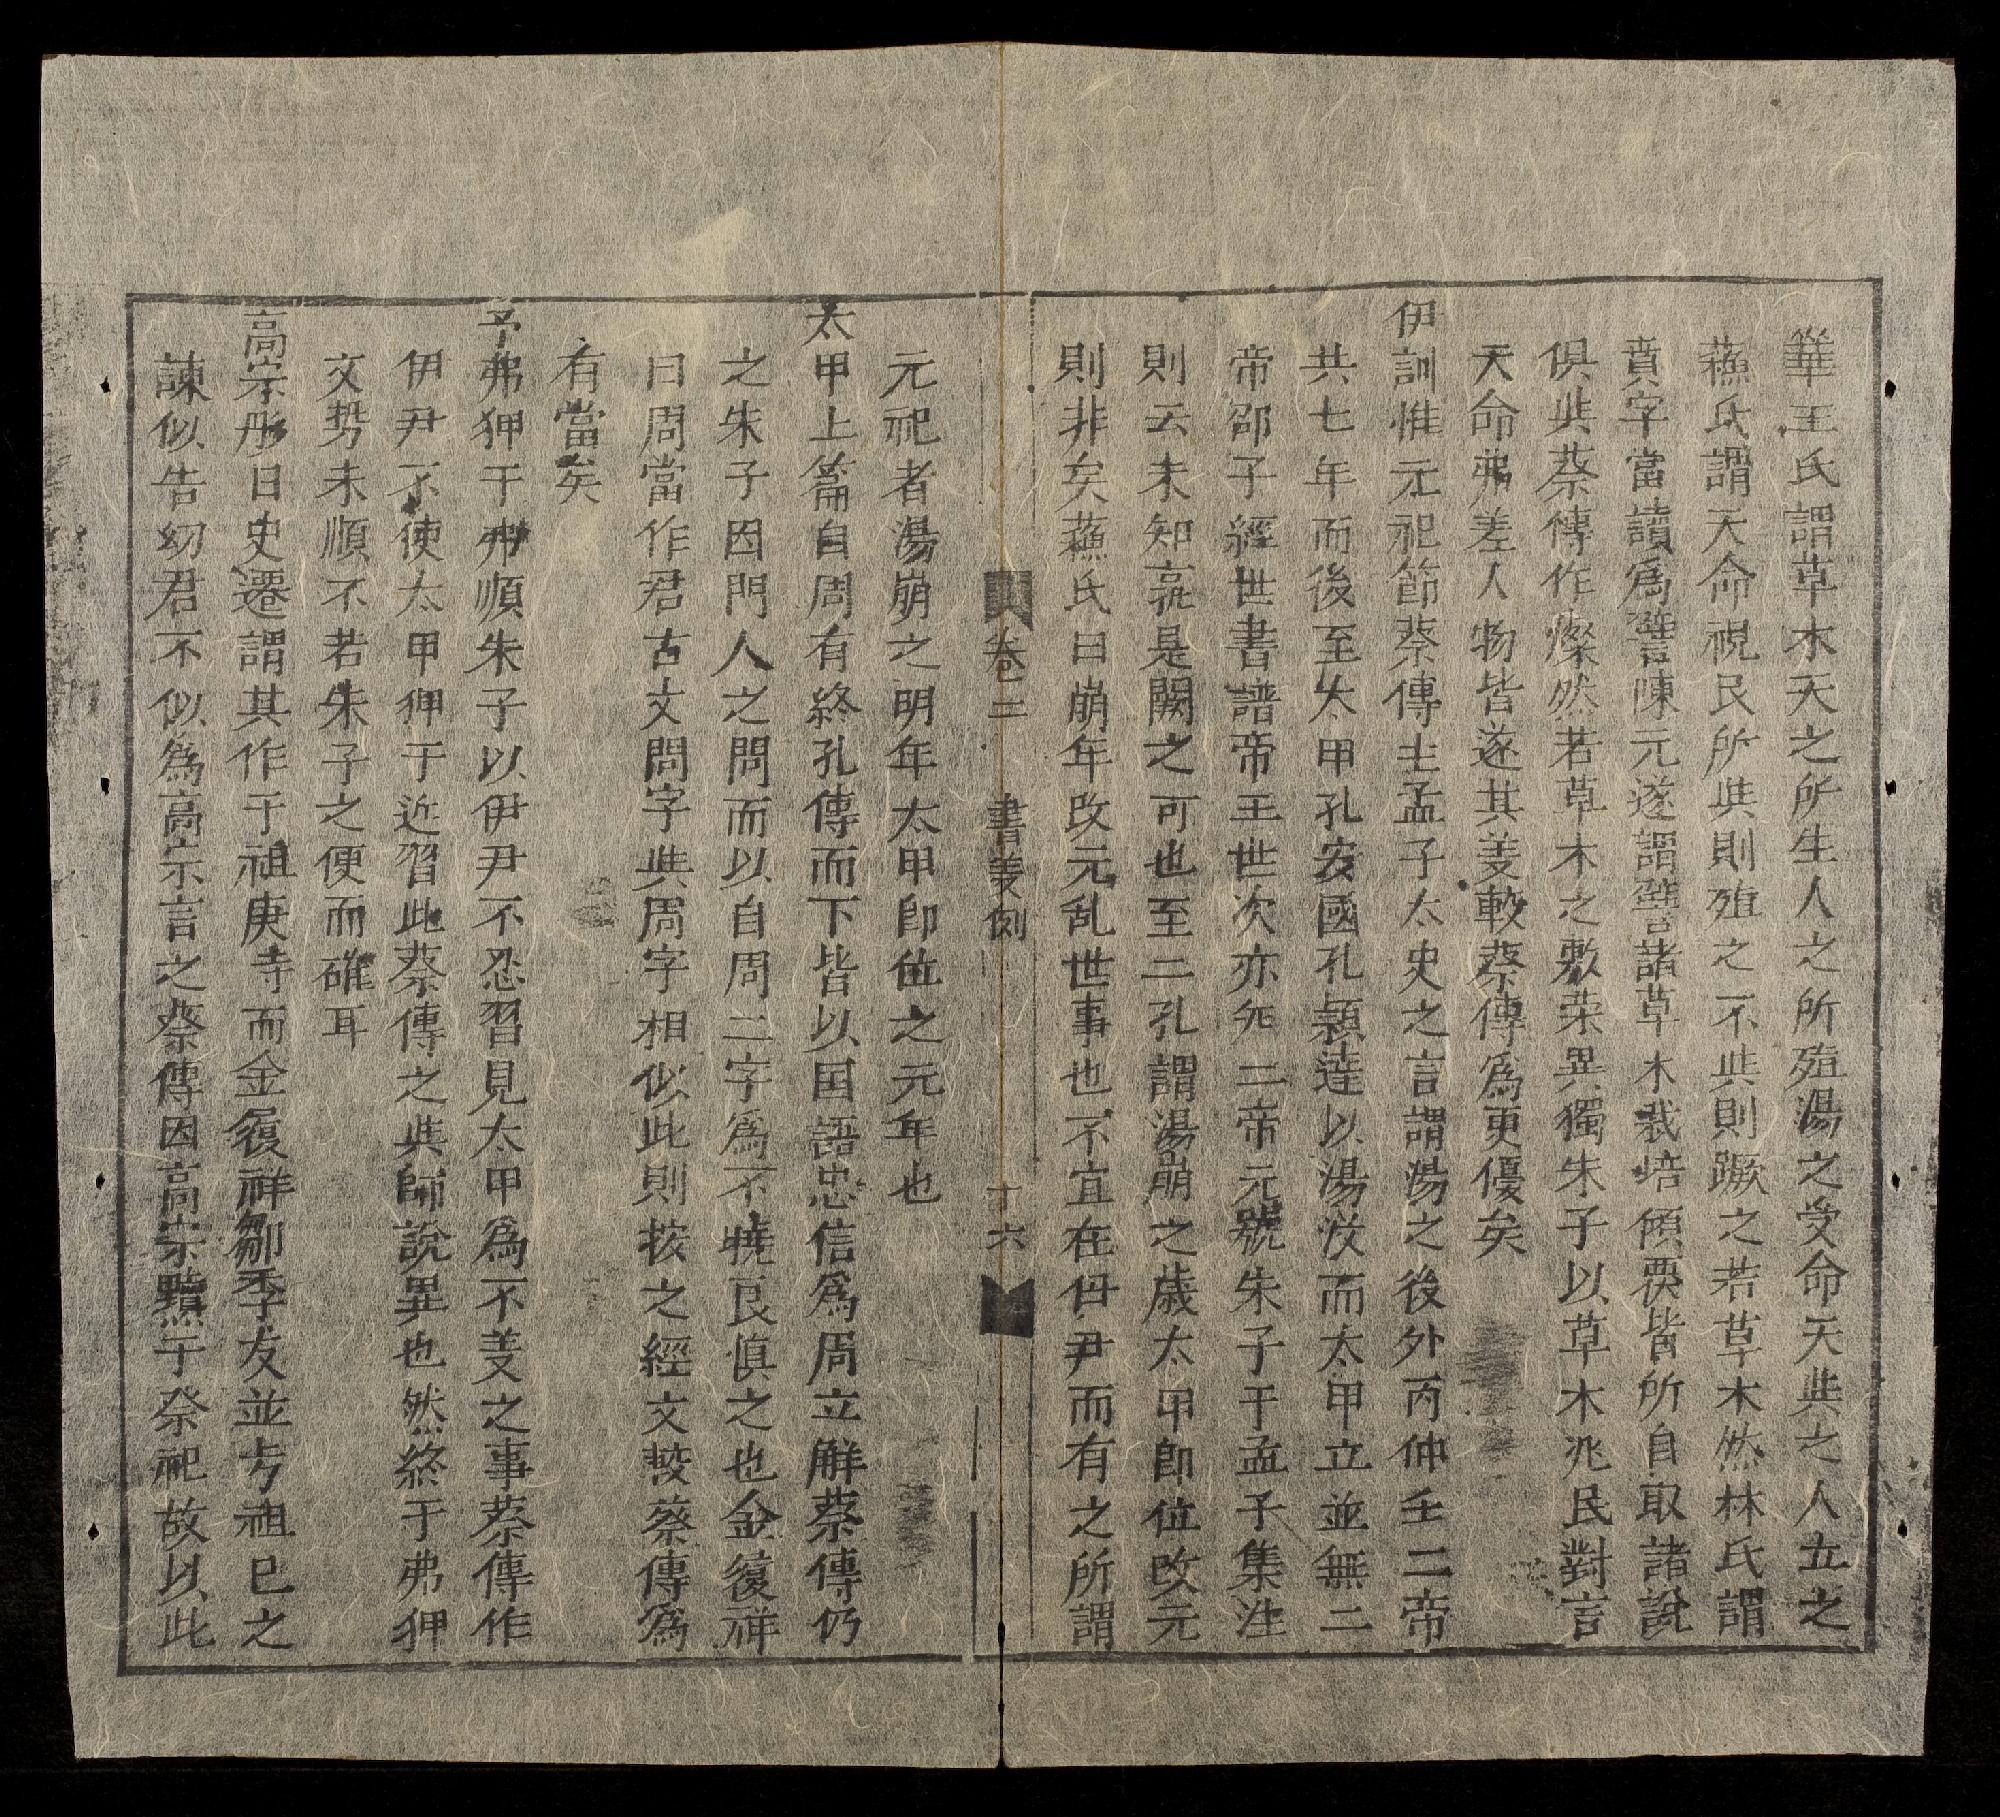 華王氏謂草木天之所生人之所殖湯之受命天與之人立之
蘓氏謂天命視民所與則殖之不與則蹶之若草木然林氏謂
賁字當讀爲讙言陳元遂謂讙言諸草木栽培傾覆皆所自取諸說
俱與蔡傳作燦然若草木之敷荣異獨朱子以草木兆民對言
天命弗差人物皆遂其羙較蔡傳爲更優矣
伊訓惟元祀節蔡傳主孟子太史之言謂湯之後外丙仲壬二帝
共七年而後至太甲孔安國孔穎達以湯沒而太甲立並無二
帝邵子經世書譜帝王世次亦无二帝元號朱子于孟子集注
則云未知孰是闕之可也至二孔謂湯崩之歲太甲卽位改元
則非矣蘓氏曰崩年改元乱世事也不宜在伊尹而有之所謂
卷三 書義例 十六
元祀者湯崩之明年太甲卽位之元年也
太甲上篇自周有終孔傳而下皆以国語忠信爲周立解蔡傳仍
之朱子因門人之問而以自周二字爲不曉良愼之也金復祥
曰周當作君古文問字與周字相似此則按之經文較蔡傳爲
有當矣
予弗狎于弗順朱子以伊尹不忍習見太甲爲不羙之事蔡傳作
伊尹不使太甲狎于近習此蔡傳之與師說異也然終于弗狎
文势未順不若朱子之便而確耳
高宗肜日史遷謂其作于祖庚寺而金履祥鄒季友並考祖巳之
諫似告㓜君不似爲高宗言之蔡傳因高宗黷于祭祀故以此